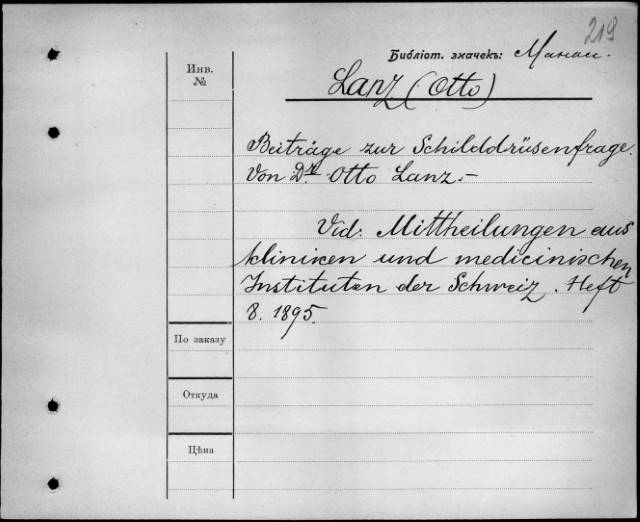 219
Библіот. значекъ:
Инв.
№
Lanz (Otto)
Beiträge zur Schilddrüsenfrage.
Von Dr. Otto Lanz.–
Vid: Mittheilungen aus
kliniken und medicinischen
Instituten der Schweiz. Heft
8. 1895.
По заказу
Откуда
Цѣна